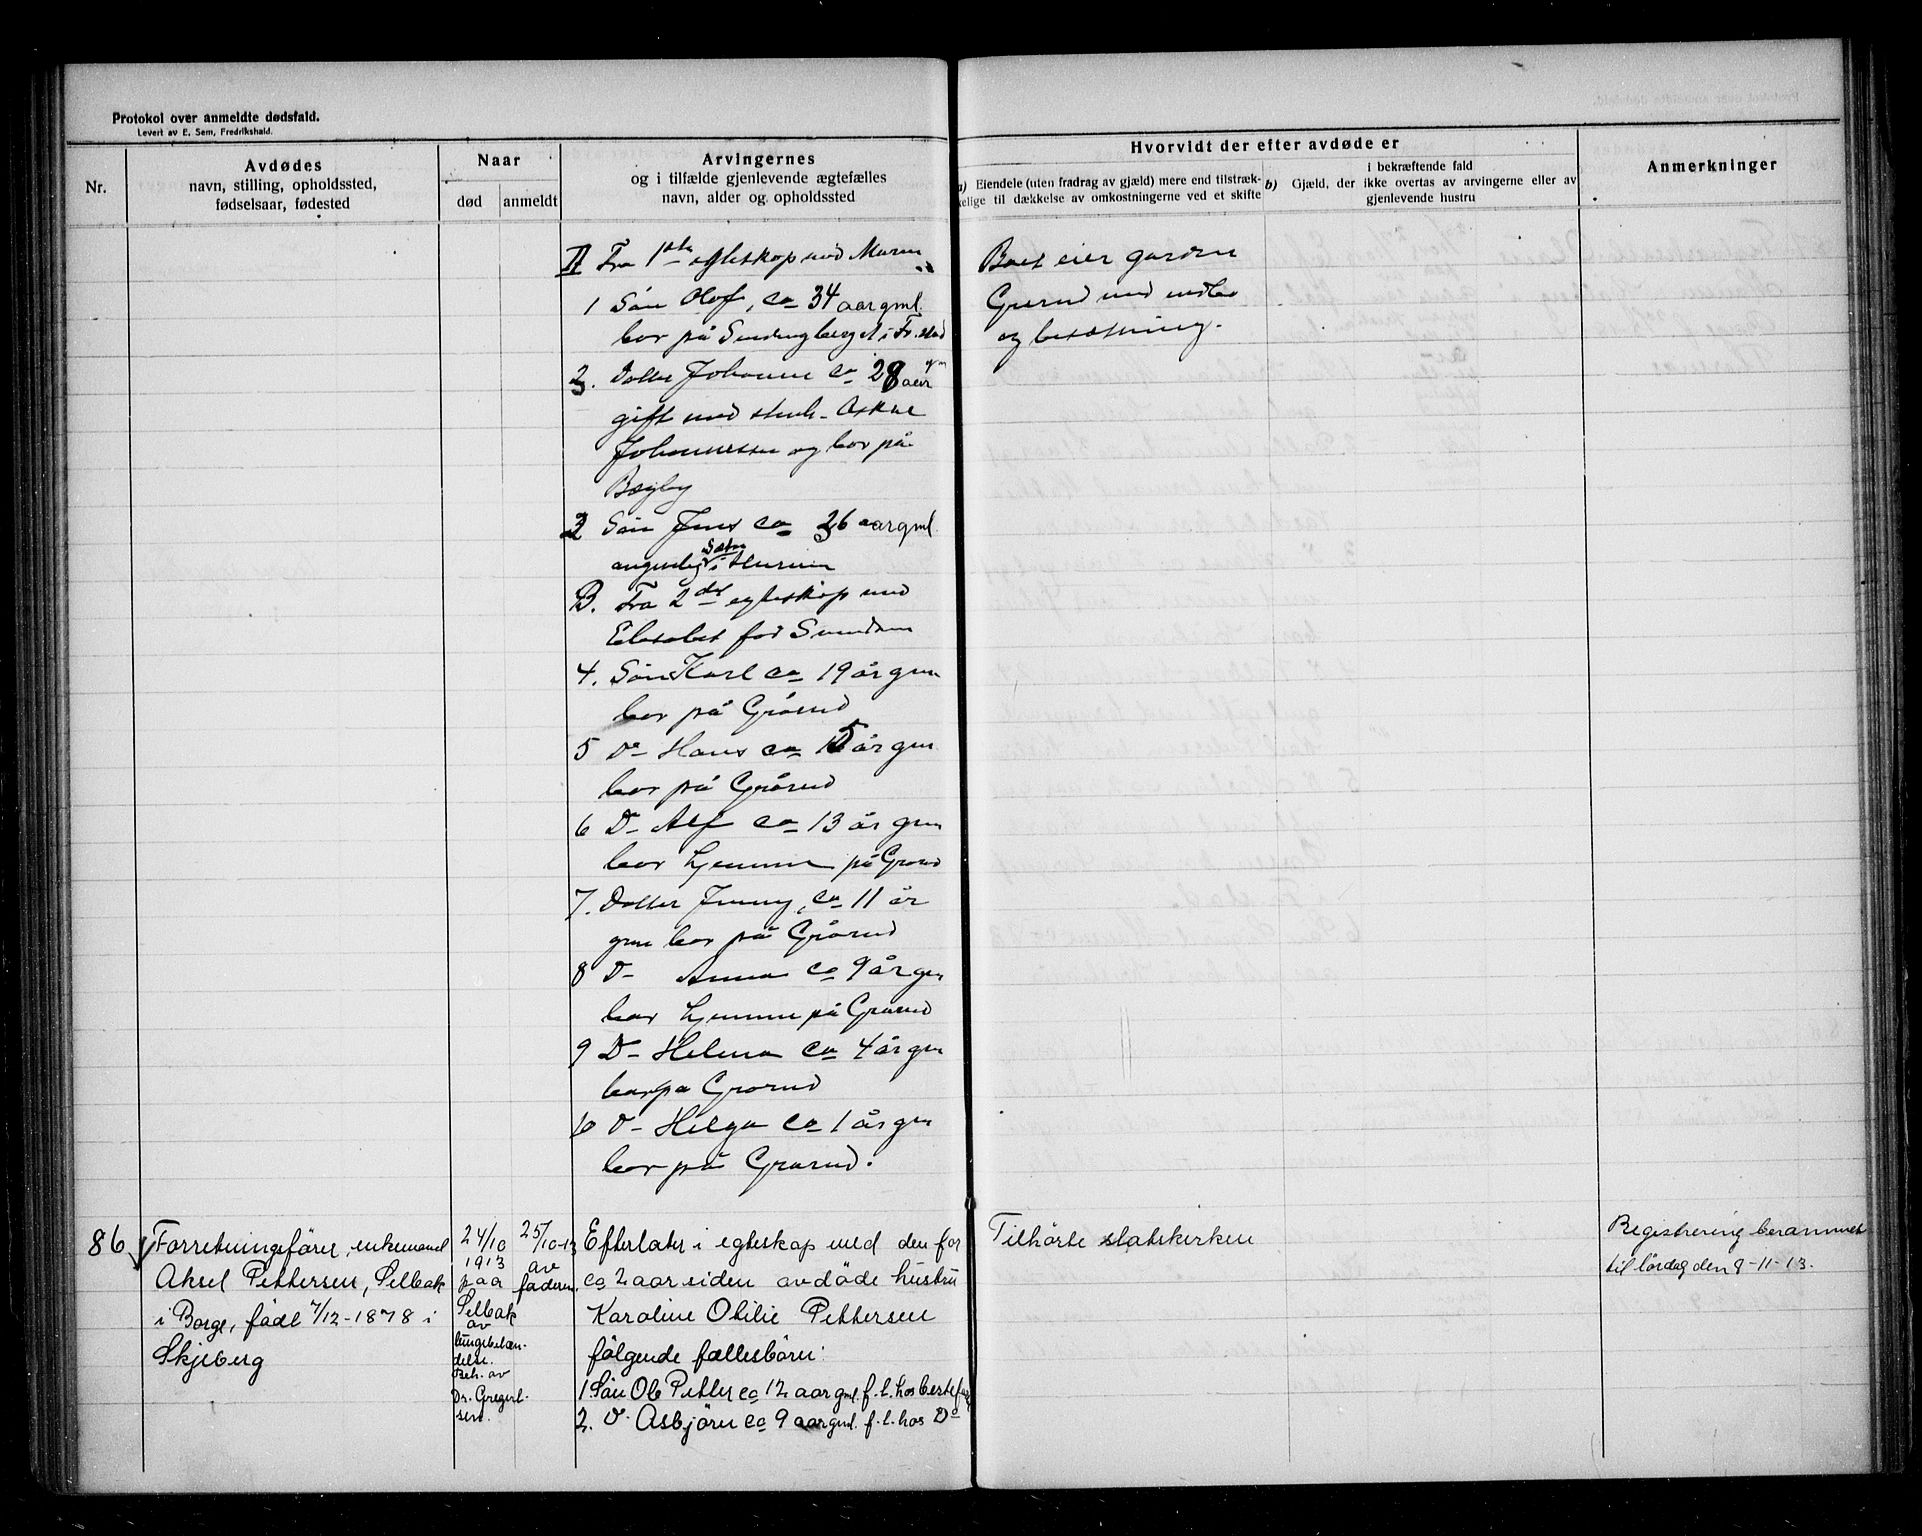 Protokol over anmeldte dødsfald.
Levert av E. Sem, Fredrikshald.
Nr.
Avdødes
navn, stilling, opholdssted,
fødselsaar, fødested
Naar
død
anmeldt
Arvingernes
og i tilfælde gjenlevende ægtefælles
navn, alder og opholdssted
Hvorvidt der efter avdøde er
a) Eiendele (uten fradrag av gjæld) mere end tilstræk-
kelige til dækkelse av omkostningerne ved et skifte
i bekræftende fald
b) Gjæld, der ikke overtas av arvingerne eller av
gjenlevende hustru
Anmerkninger
A Fra 1ste egteskap med Maren
1 Søn Olof, ca 34 aar gml.
bor på i Fr.stad
2. Datter Johanne ca 28 aar
gift med stenh. Oskar
Johannessen og bor på
Begby
3 Søn Jens ca 26 aar gml.
angivelig i Hurum
B. Fra 2det egteskap med
Elisabet fød Svendsen
4. Søn Karl ca 19 år gm
bor på Grørud
5 Do Hans ca 15 år gm
bor på Grørud
6 D- Alf ca 13 år gm
bor hjemme på Grørud
7. Datter Jenny, ca 11 år
gm bor på Grørud
8 D- Anna ca 9 år gm
bor hjemme på Grørud
9 D- Helena ca 4 år gm
bor på Grørud
10 D- Helga ca 1 år gm
bor på Grørud.
Boet eier gården
Grørud med indbo
og besætning.
86 Forretningsfører, enkemand
Aksel Pettersen, Selbak
i Borge, født 7/12-1878 i
Skjeberg
24/10
1913
paa
Selbak
av
lungebetæn-
delse.
Beh. av
Dr. Gregert-
sen.
25/10-13
av
faderen.
Efterlater i egteskap med den for
ca 2 aar siden avdøde hustru
Karoline Otilie Pettersen
følgende fællesbørn:
1. Søn Ole Petter ca 12 aar gml. f.t. hos bestefar
2. D- Asbjørn ca 9 aar gml. f.t. hos Do
Tilhørte statskirken
Registrering berammet
til lørdag den 8-11-13.